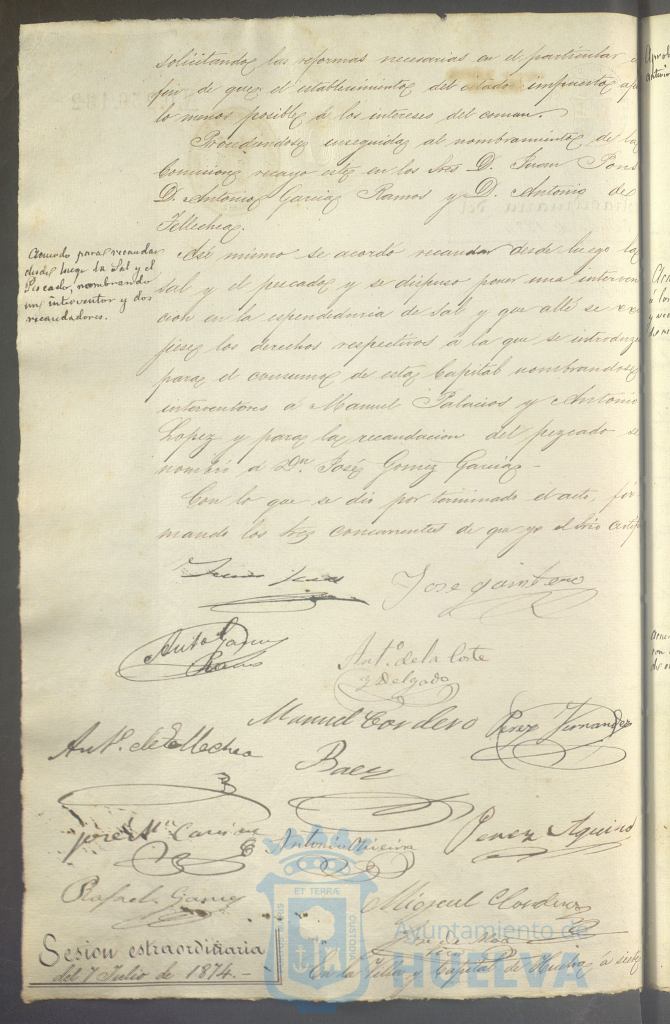 solicitando las reformas necesarias en el particular á
fin de que el establecimiento del citado impuesto a
lo menos posible á los intereses del comun.
Procediendose enseguida al nombramiento de la
Comision recayo este en los Sres D. Juan Pons
D. Antonio Garcia Ramos y D. Antonio de
Tellechea.
Acuerdo para recaudar
desde luego la Sal y el
Pescado, nombrando
un interventor y dos
recaudadores.
Asi mismo se acordó recaudar desde luego la
sal y el pescado y se dispuso poner una interven
cion en la espendeduria de Sal y que alli se
los derechos respectivos á la que se introduzca
para el consumo de esta Capital nombrandose
interventores á Manuel Palacios y Antonio
Lopez y para la recaudacion del pezcado se
nombró á Dn. José Gomez Garcia.
Con lo que se dio por terminado el acto, fir
mando los Sres concurrentes de que yo el Srio certifo
Jose Quintero
Anto. Garcia
Ramos
Anto. de la Corte
y Delgado
Manuel Cordero
Perez Fernandez
Anto. de Tellechea
Baez
Jose Ma. Garcia
Antonio Oliveira
Perez Aquino
Rafael Garcia
Miguel Cordero
ET TERRÆ
CUSTODIA
Ayuntamiento de
HUELVA
Sesion estraordinaria
del 7 Julio de 1874.-
En la Villa y Capital de Huelva á siete